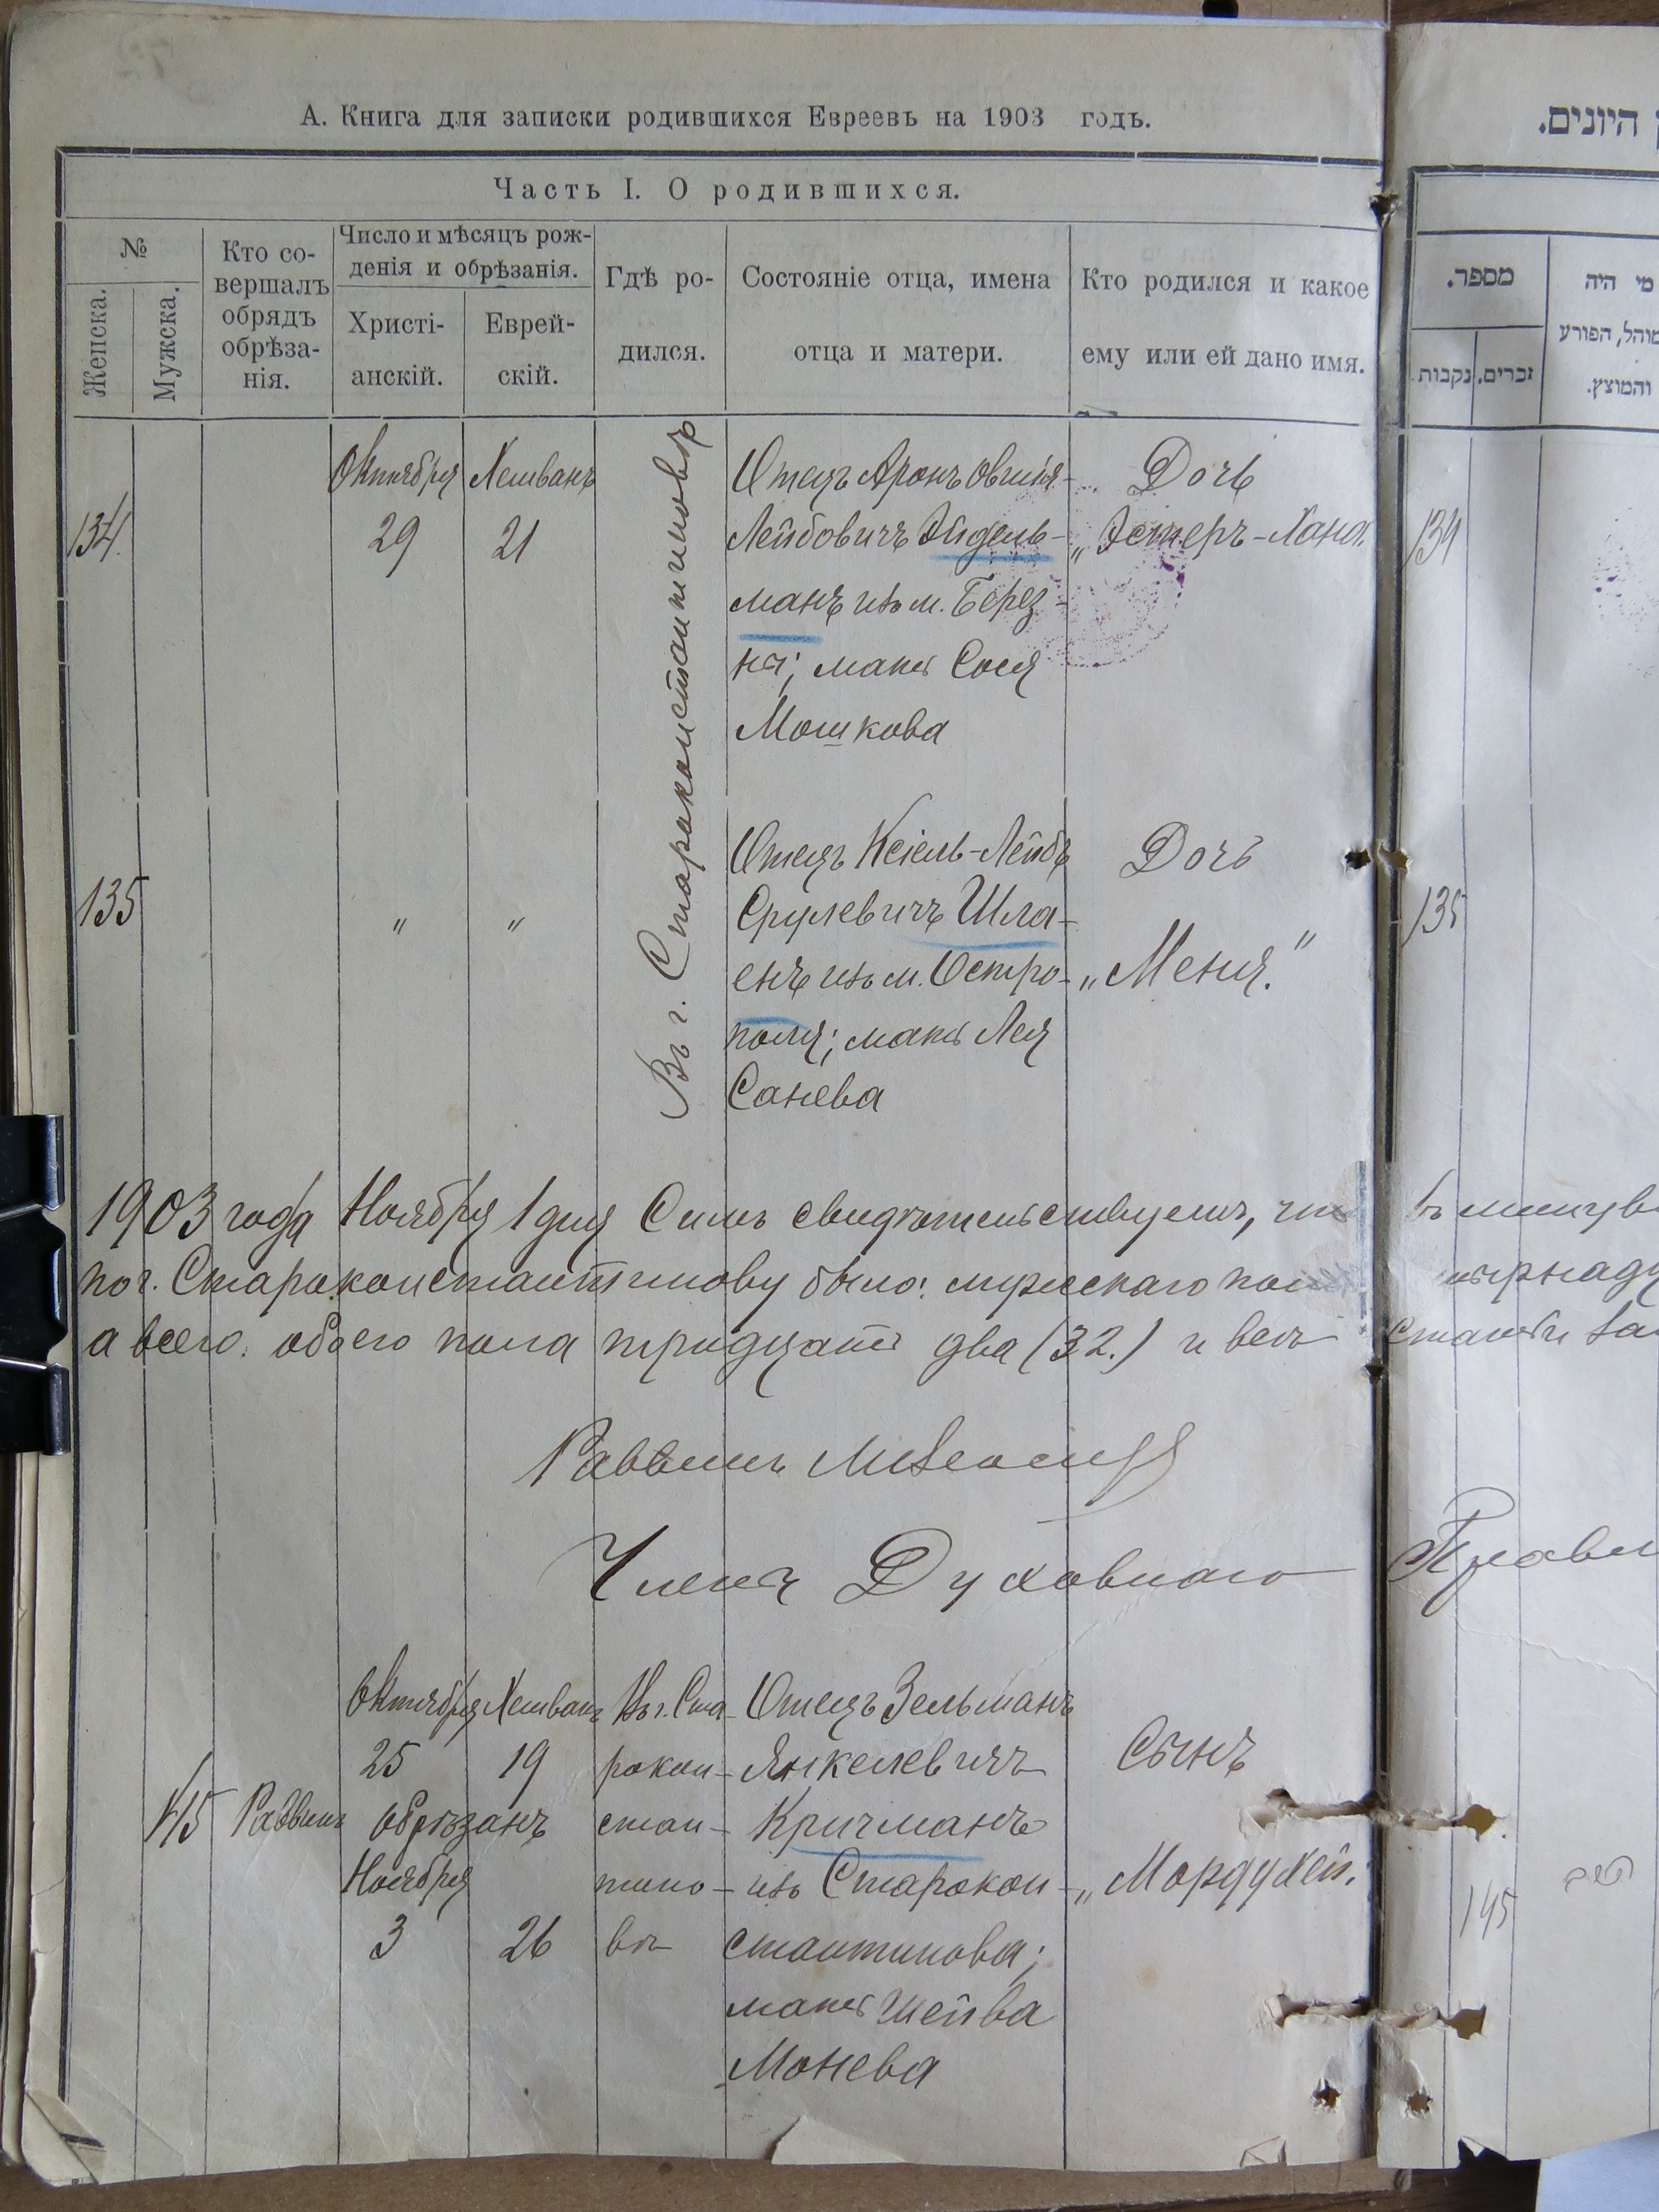 А. Книга для записки родившихся Евреевъ на 1903 годъ.
היונים.
Часть I. О родившихся.
№
Женска.
Мужска.
Кто со-
вершалъ
обрядъ
обрѣза-
нія.
Число и мѣсяцъ рож-
денія и обрѣзанія.
Христі-
анскій.
Еврей-
скій.
Гдѣ ро-
дился.
Состояніе отца, имена
отца и матери.
Кто родился и какое
ему или ей дано имя.
מספר.
נקבות
זכרים.
מי היה
מוהל, הפורע
והמוצץ.
134.
Октября
29
Хешванъ
21
Въ г. Староконстантиновѣ
Отецъ Аронъ Овшія-
Лейбовичъ Эйдель-
манъ изъ м. Берез-
на; мать Сося
Мошкова
Дочь
„Эстеръ-Хана.
134
135
"
"
Отецъ Ксіель-Лейбъ
Срулевичъ Шла-
енъ изъ м. Остро-
поля; мать Лея
Санева
Дочь
„Меня."
135
1903 года Ноября 1 дня Симъ свидѣтельствуемъ, что въ
по г. Староконстантинову было: мужскаго пола
а всего: обоего пола тридцать два (32.) и всѣ статьи
Раввинъ
Членъ Духовнаго
145
Раввинъ
Октября
25
обрѣзанъ
Ноября
3
Хешванъ
19
26
Въ г. Ста-
рокон-
стан-
тино-
вѣ
Отецъ Зельманъ
Янкелевичъ
Кричманъ
изъ Старокон-
стантинова;
мать Шейва
Монева
Сынъ
„Мордухей.
145